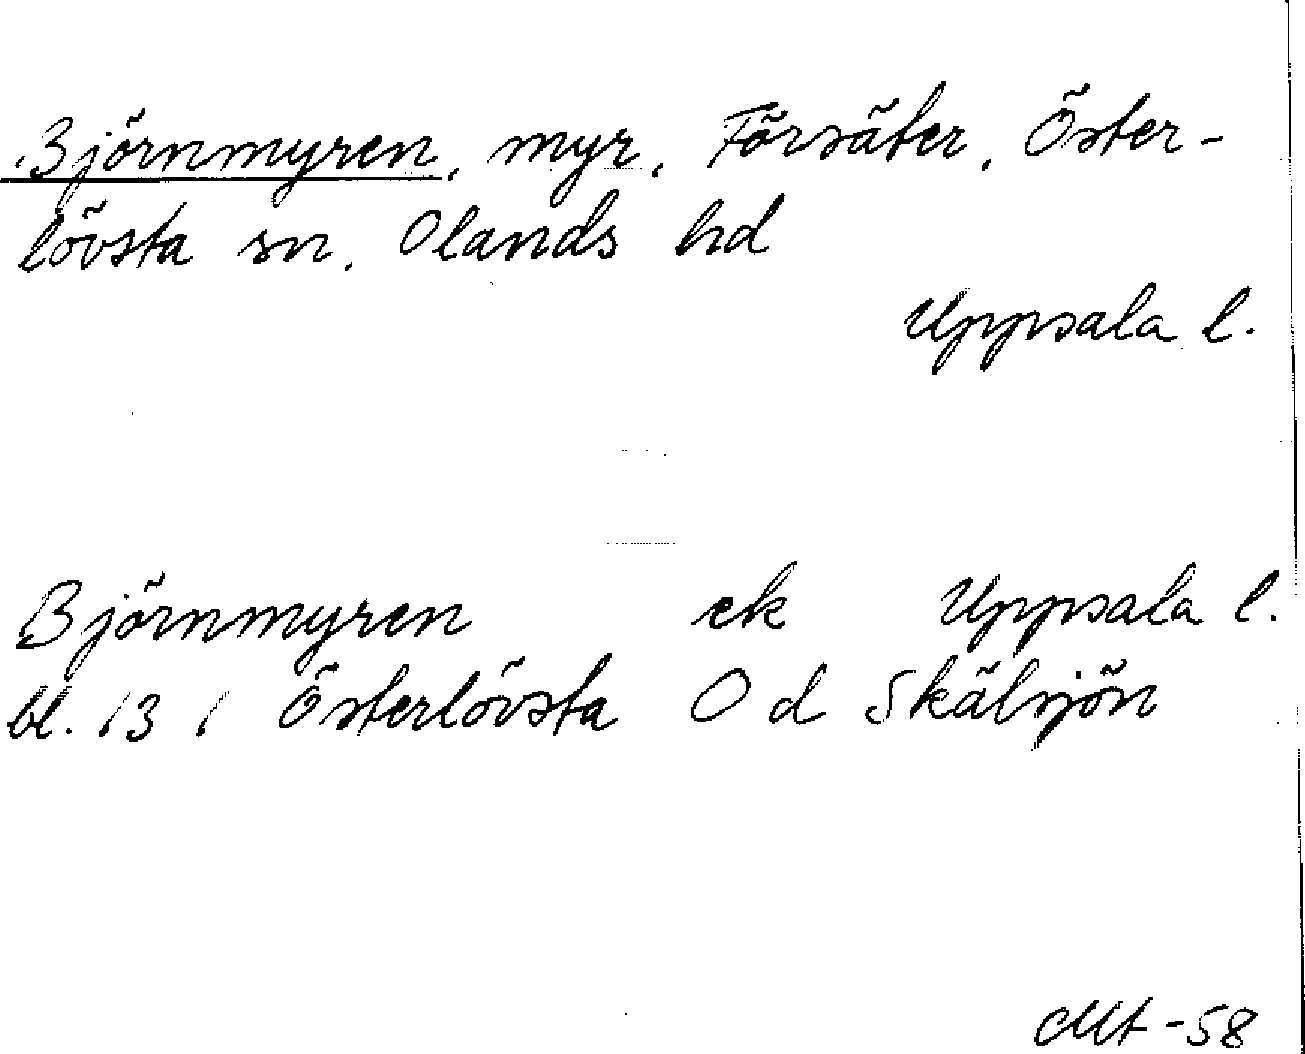 Björnmyren, myr, Försäter, Öster-
lövsta sn, Olands hd
Uppsala l.
Björnmyren ek Uppsala l.
bl. 13 / Österlövsta O d Skälsjön
-58